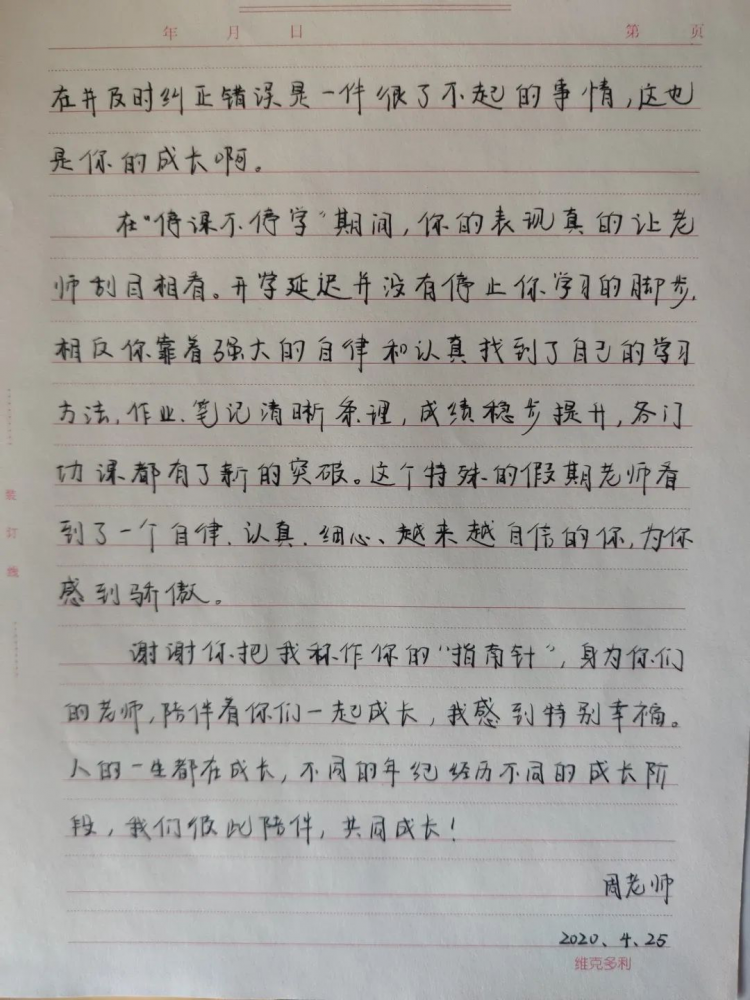 年 月 日 第 页
在并及时纠正错误是一件很了不起的事情,这也
是你的成长啊。
在“停课不停学”期间,你的表现真的让老
师刮目相看。开学延迟并没有停止你学习的脚步,
相反你靠着强大的自律和认真找到了自己的学习
方法,作业、笔记清晰条理,成绩稳步提升,各门
功课都有了新的突破。这个特殊的假期老师看
到了一个自律、认真、细心、越来越自信的你,为你
感到骄傲。
谢谢你把我称作你的“指南针”,身为你们
的老师,陪伴着你们一起成长,我感到特别幸福。
人的一生都在成长,不同的年纪经历不同的成长阶
段,我们彼此陪伴,共同成长!
周老师
2020.4.25
维克多利
装订线